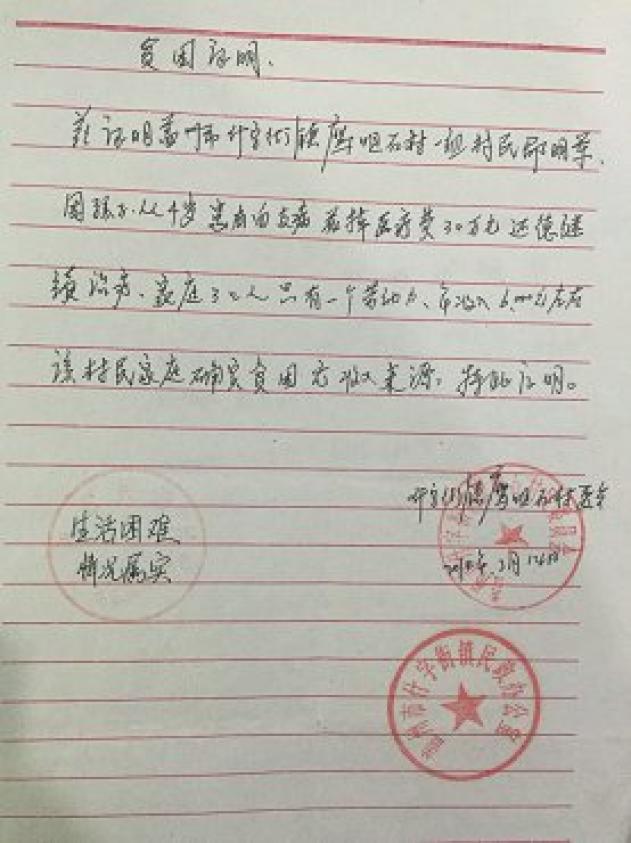 贫困证明、
兹证明盖州市什字街镇鹰咀石村一组村民邵明
因孩子从4岁患有白血病花掉医疗费30万元还德继
续治疗、家庭3口人只有一个劳动力、年收入6,000元左右
该村民家庭确实贫困无收入来源。特此证明。
什字街镇鹰咀石村委会
生活困难
情况属实
盖州市什字街镇民政办公室